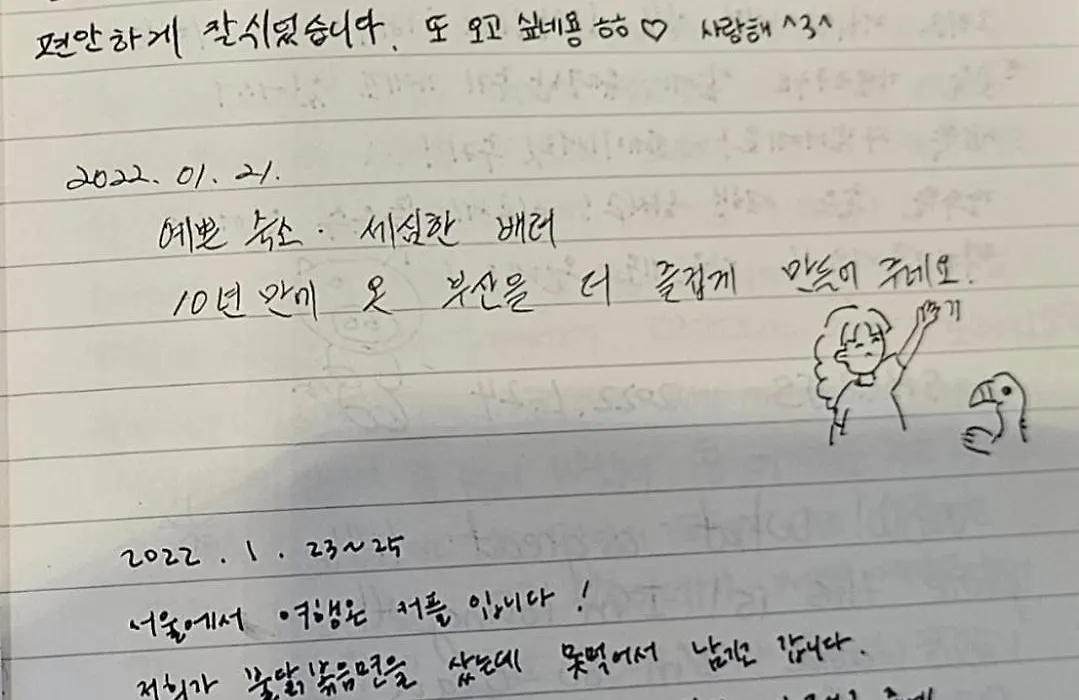 편안하게 잘 쉬었습니다. 또 오고 싶네용 ㅎㅎ ♡ 사랑해 ^3^
2022. 01. 21.
예쁜 숙소 · 세심한 배려
10년 만에 온 부산을 더 즐겁게 만들어 주네요.
2022 . 1 . 23~25
서울에서 여행온 커플 입니다 !
저희가 불닭볶음면을 샀는데 못먹어서 남기고 갑니다.